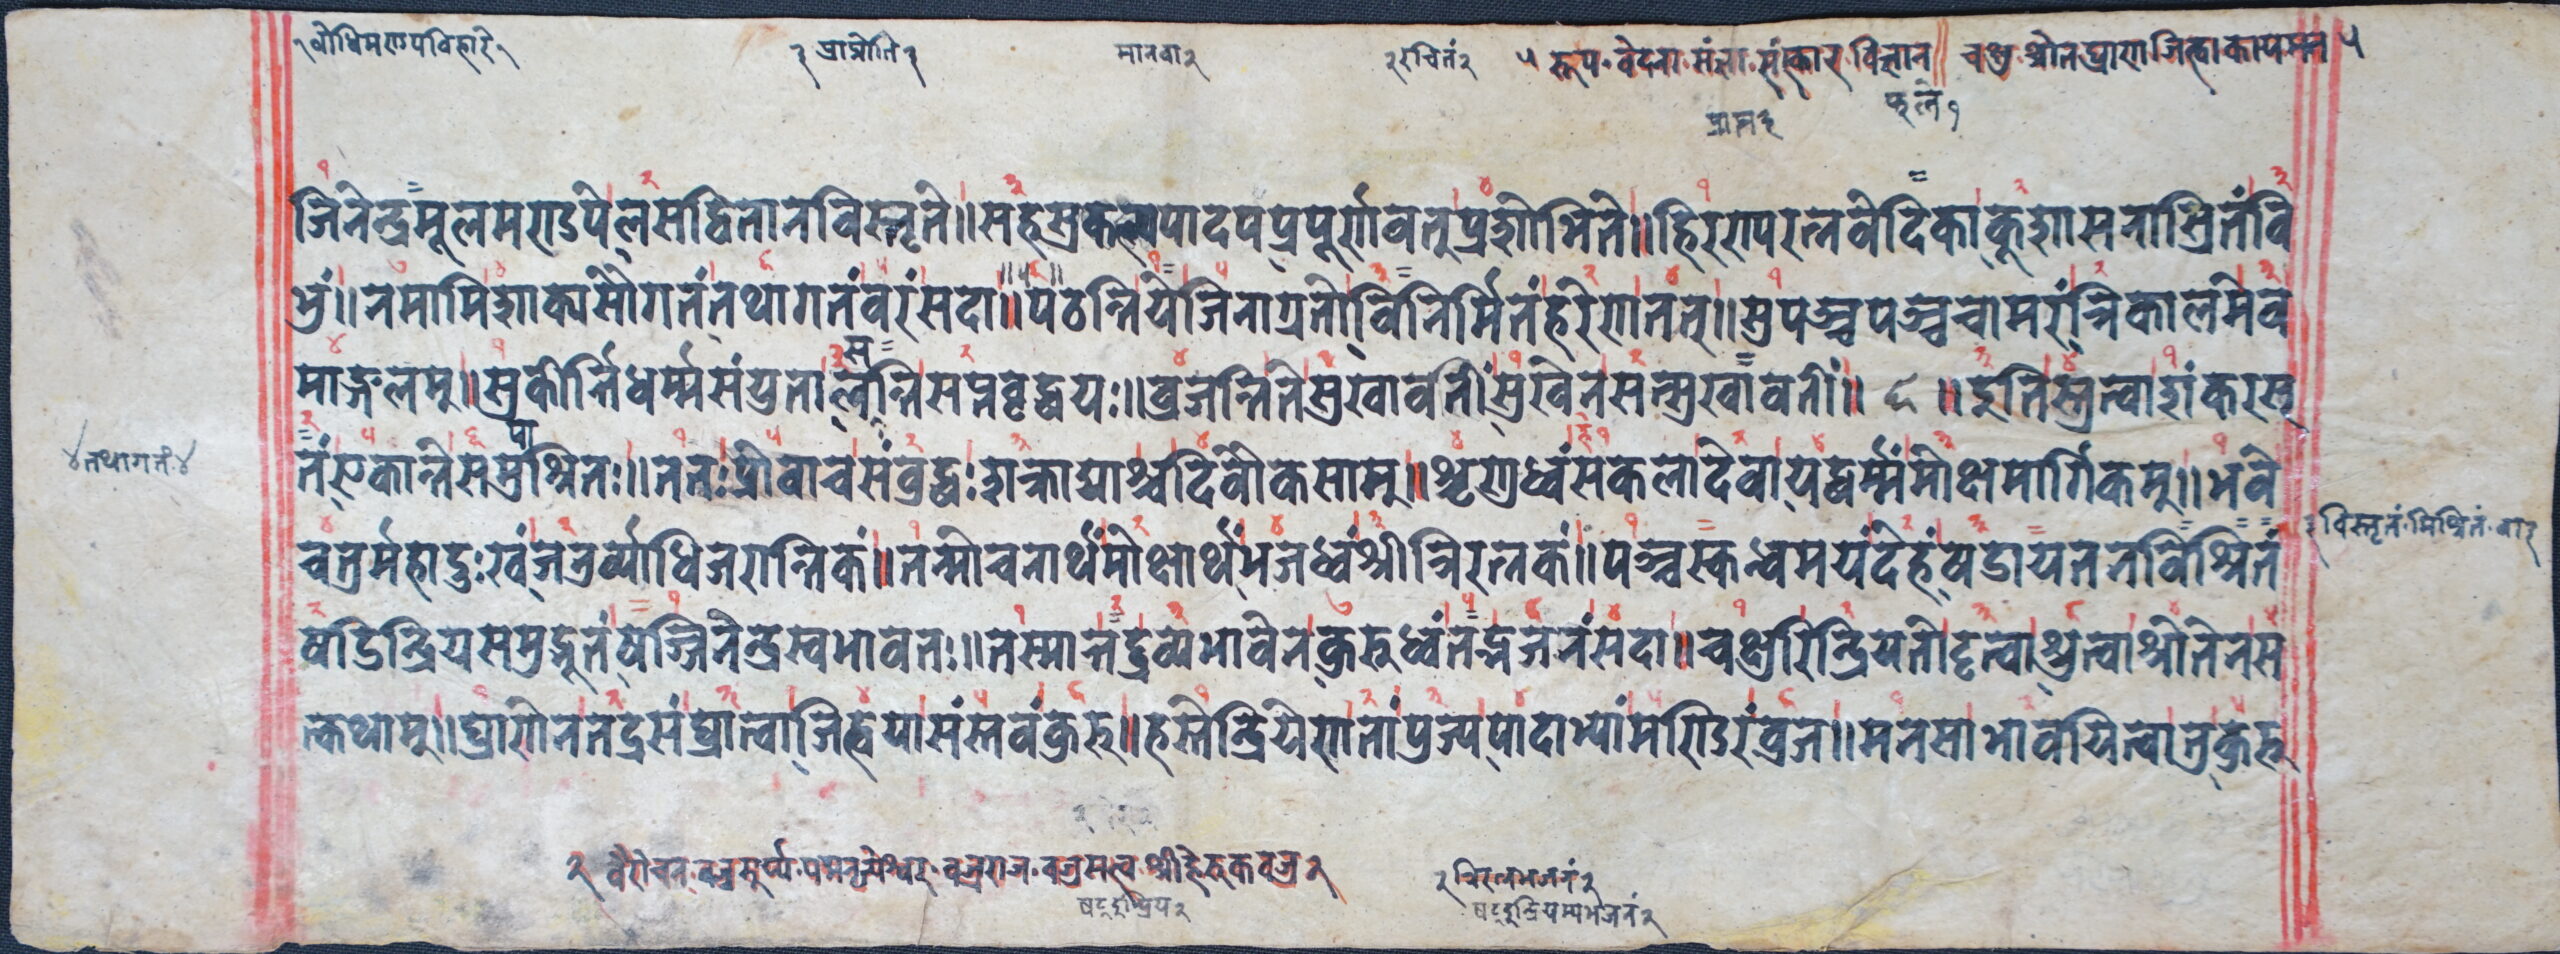 २बोधिमण्डपविहारे२ २प्राप्नोति२ मानवा२ २रचितं२ ५ रूप·वेदना·संज्ञा·संस्कार·विज्ञान॥ चक्षु·श्रोतघ्राणजिह्वाकायमन५
जिनेन्द्रमूलमण्डपेलसद्वितानविस्तृते॥सहस्रकल्पपादपप्रपूर्णवत्प्रशोभिते॥हिरण्यरत्नवेदिकाकूशासनाश्रितंवि
भुं॥नमामिशाक्यसौगतंतथागतंवरंसदा॥५॥पठन्तियेजिनाग्रतोविनिर्मितंहरेणतत्॥सुपञ्चपञ्चचामरंत्रिकालमेव
माङ्गलम्॥सुकीर्त्तिधर्म्मसंयुतालभन्तिसप्तवृद्धयः॥व्रजन्तितेसुखावतींसुखेनसत्सुखावतीं॥ ६ ॥इतिस्तुत्वाशंकरस्
तंएकान्तेसमुपाश्रितः॥ततःप्रोवाचसंबुद्धःशक्राद्याश्चदिवौकसाम्॥शृणुध्वंसकलादेवायद्धर्म्मंमोक्षमार्गिकम्॥भवे
४तथागतं·४
चतुर्महादुःखंजतुर्व्याधिजरान्तिकं॥तन्मोचनार्थंमोक्षार्थंभजध्वंश्रीत्रिरत्नकं॥पञ्चस्कन्धमयंदेहंषडायतनविश्रितं
२विस्तृतं·मिश्रितं·वा२
षडिन्द्रियसमुद्भूतंषेज्जिनेन्द्रस्वभावतः॥तस्मात्तद्द्रव्यभावेनकुरुध्वंतद्भजनंसदा॥चक्षुरिन्द्रियतोदृत्वाश्रुत्वाश्रोतेनस
त्कथाम्॥घ्राणेनतद्रसंघ्रात्वाजिह्वेयासंस्तवंकुरु॥हस्तेन्द्रियेणतांप्रज्यपादाभ्यांमण्डिरंव्रज॥मनसाभावयित्वातुकुरु
२ वैरोचन·वज्रसुर्य्य·पद्मनृत्येश्वर·वज्रराज·वज्रसत्व·श्रीहेरुकवज्र२ २त्रिरत्नभजनं२
षट्इन्द्रिय२ षट्इन्द्रियस्यभजनं२